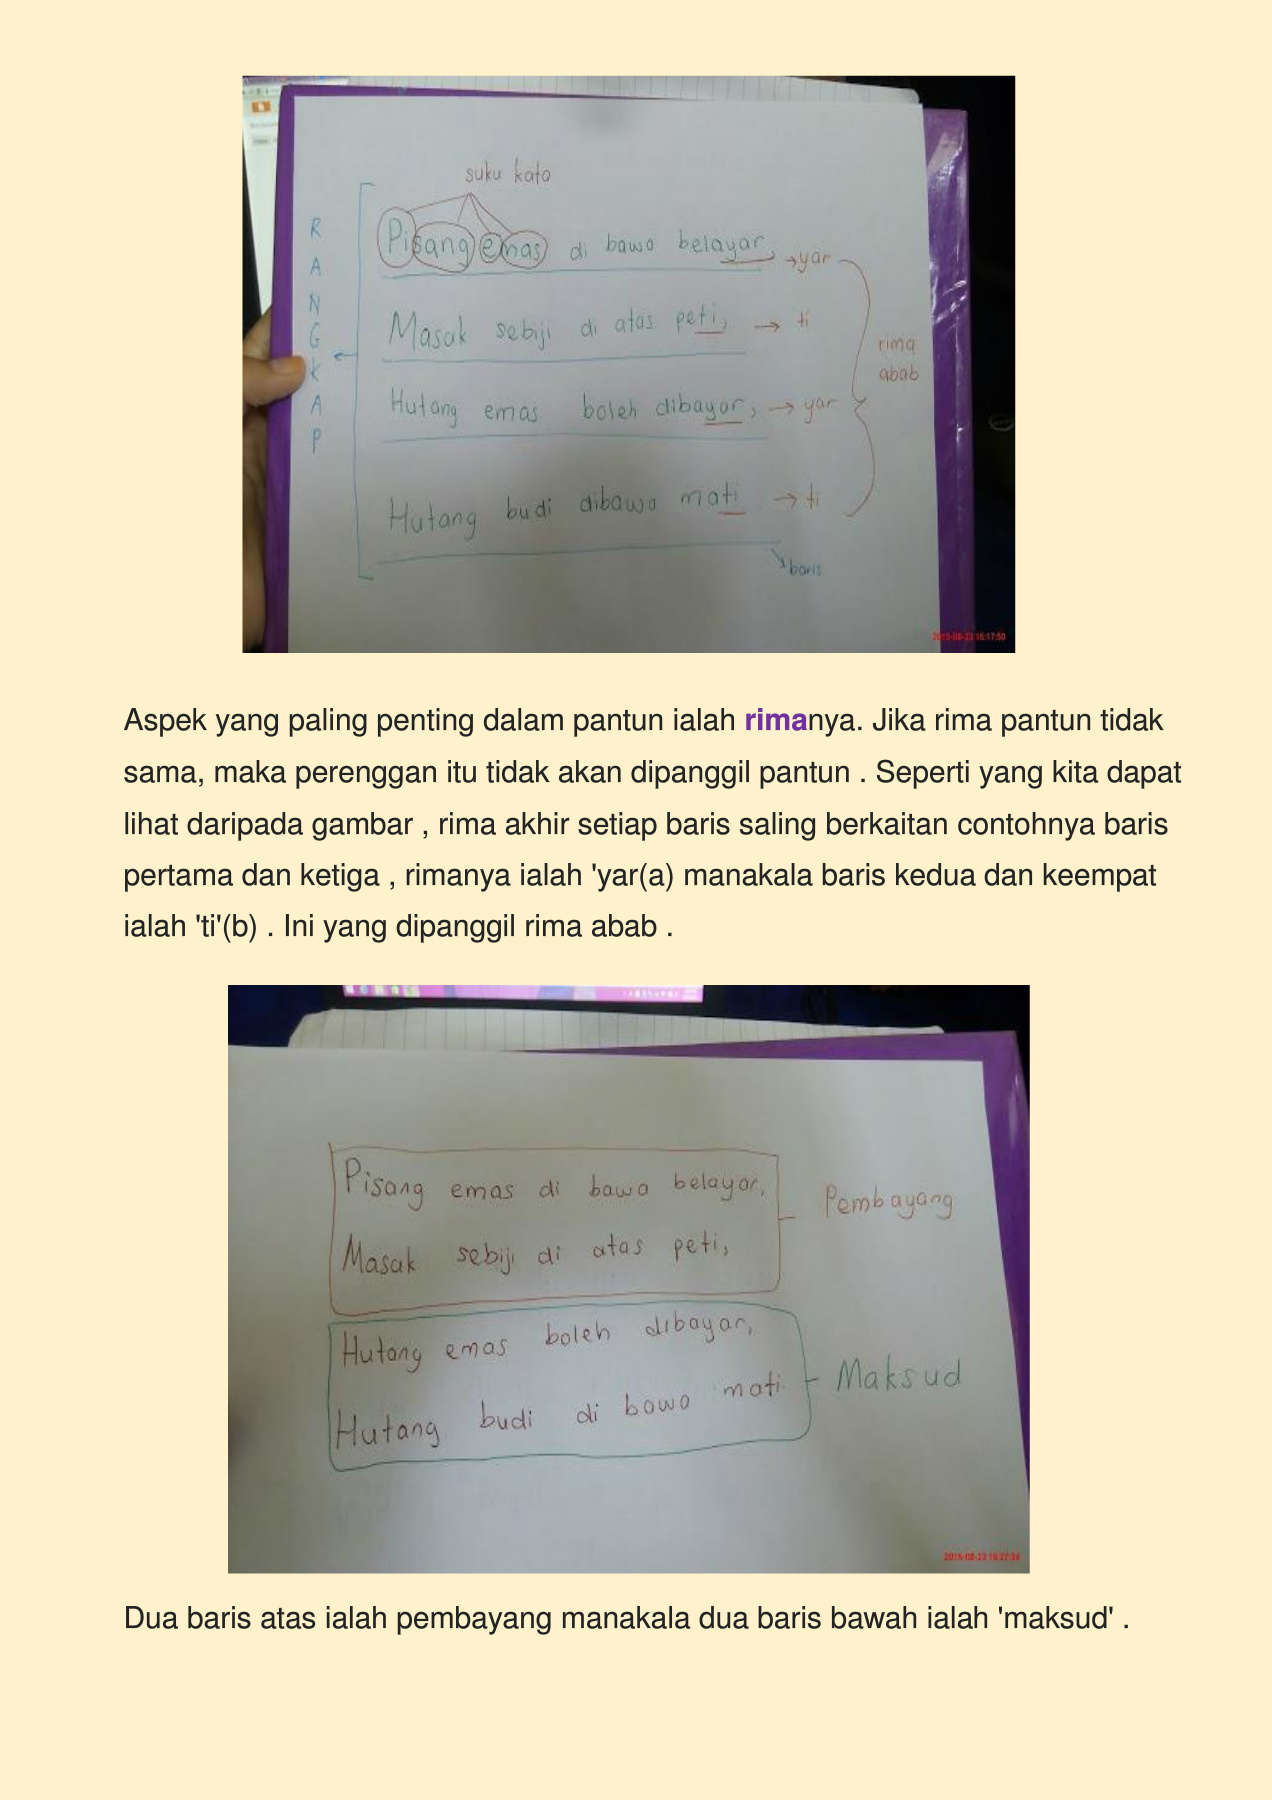 suku kata
Pisang emas di bawa belayar, → yar
Masak sebiji di atas peti, → ti
Hutang emas boleh dibayar, → yar
Hutang budi dibawa mati → ti
RANGKAP
rima
abab
baris
16:17:50
Aspek yang paling penting dalam pantun ialah rimanya. Jika rima pantun tidak
sama, maka perenggan itu tidak akan dipanggil pantun . Seperti yang kita dapat
lihat daripada gambar , rima akhir setiap baris saling berkaitan contohnya baris
pertama dan ketiga , rimanya ialah 'yar(a) manakala baris kedua dan keempat
ialah 'ti'(b) . Ini yang dipanggil rima abab .
Pisang emas di bawa belayar,
Masak sebiji di atas peti,
Pembayang
Hutang emas boleh dibayar,
Hutang budi di bawa mati
Maksud
Dua baris atas ialah pembayang manakala dua baris bawah ialah 'maksud' .